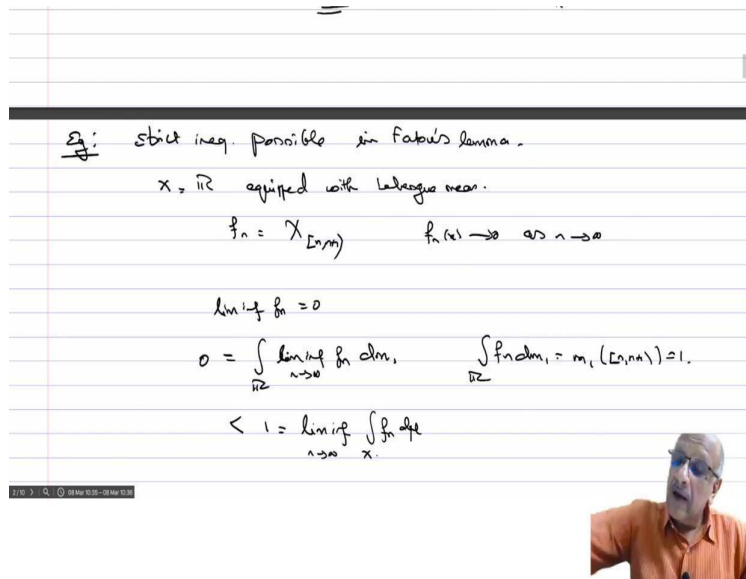 Eg: Strict ineq. possible in Fatou's lemma.
X = ℝ equipped with Lebesgue meas.
fₙ = χ_[n,n+1) fₙ(x) → 0 as n → ∞
lim inf fₙ = 0
0 = ∫_ℝ lim inf_{n→∞} fₙ dm₁ ∫_ℝ fₙ dm₁ = m₁([n,n+1)) = 1.
< 1 = lim inf_{n→∞} ∫_X fₙ dμ
2/10 08 Mar 10:35 - 08 Mar 10:36